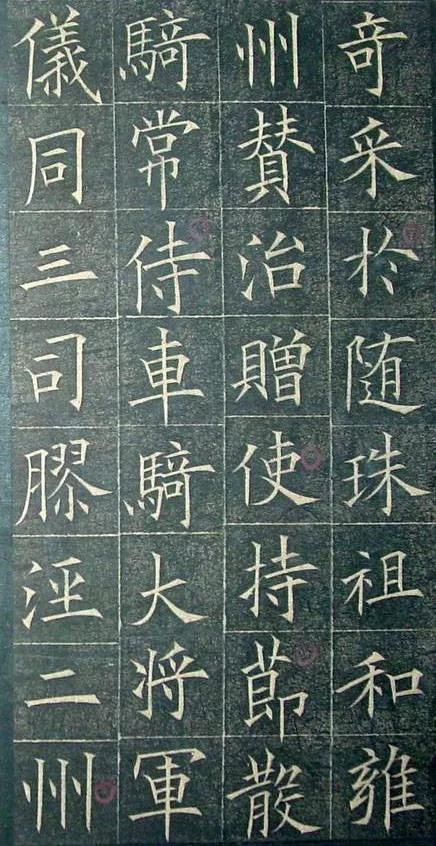 奇采扵随珠祖和雍
州賛治贈使持莭散
騎常侍車騎大将軍
儀同三司膠涇二州